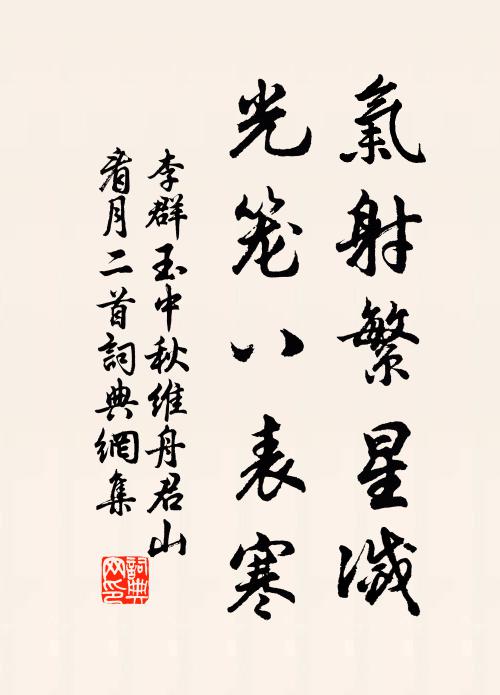 氣射繁星滅
光笼八表寒
李群玉中秋維舟君山
看月二首詞典網集
詞典网印